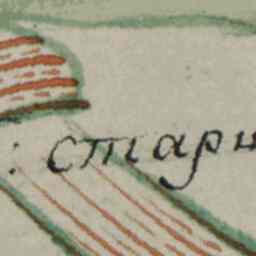 : стари